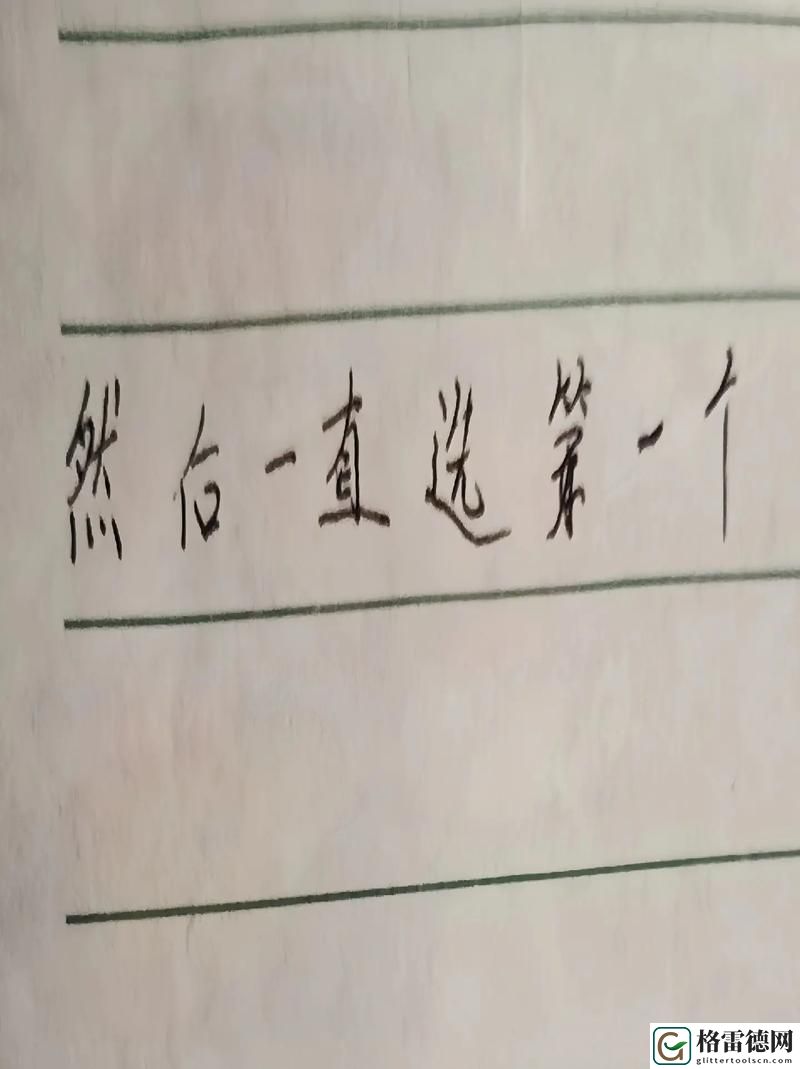 然后一直选第一个
格雷德网
glittertoolscn.com